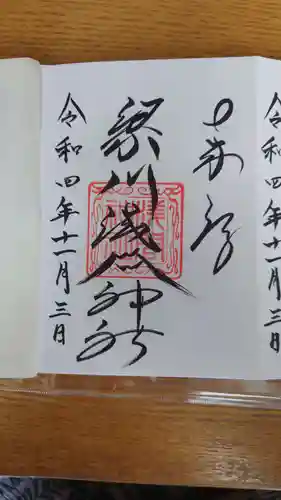 奉拝
浅間神社
令和四年十一月三日
令和四年十一月三日